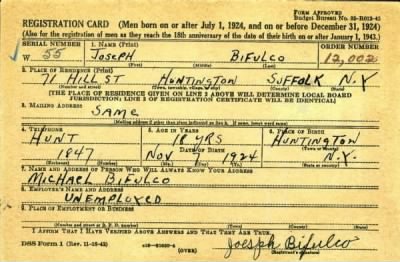 FORM APPROVED
Budget Bureau No. 33-R012-43
REGISTRATION CARD (Men born on or after July 1, 1924, and on or before December 31, 1924)
(Also for the registration of men as they reach the 18th anniversary of the date of their birth on or after January 1, 1943.)
SERIAL NUMBER 1. NAME (Print) ORDER NUMBER
W 55 JOSEPH BIFULCO 12,002
(First) (Middle) (Last)
2. PLACE OF RESIDENCE (Print)
71 HILL ST HUNTINGTON SUFFOLK N.Y
(Number and street) (Town, township, village, or city) (County) (State)
[THE PLACE OF RESIDENCE GIVEN ON LINE 2 ABOVE WILL DETERMINE LOCAL BOARD
JURISDICTION; LINE 2 OF REGISTRATION CERTIFICATE WILL BE IDENTICAL]
3. MAILING ADDRESS
SAME
[Mailing address if other than place indicated on line 2. If same, insert word same]
4. TELEPHONE 5. AGE IN YEARS 6. PLACE OF BIRTH
HUNT 18 YRS HUNTINGTON
DATE OF BIRTH (Town or county)
1847 NOV 1924 N.Y.
(Exchange) (Number) (Mo.) (Day) (Yr.) (State or country)
7. NAME AND ADDRESS OF PERSON WHO WILL ALWAYS KNOW YOUR ADDRESS
MICHAEL BIFULCO
8. EMPLOYER'S NAME AND ADDRESS
UNEMPLOYED
9. PLACE OF EMPLOYMENT OR BUSINESS
(Number and street or R. F. D. number) (Town) (County) (State)
I AFFIRM THAT I HAVE VERIFIED ABOVE ANSWERS AND THAT THEY ARE TRUE.
DSS Form 1 (Rev. 11-16-42) (OVER) Joesph Bifulco
(Registrant's signature)